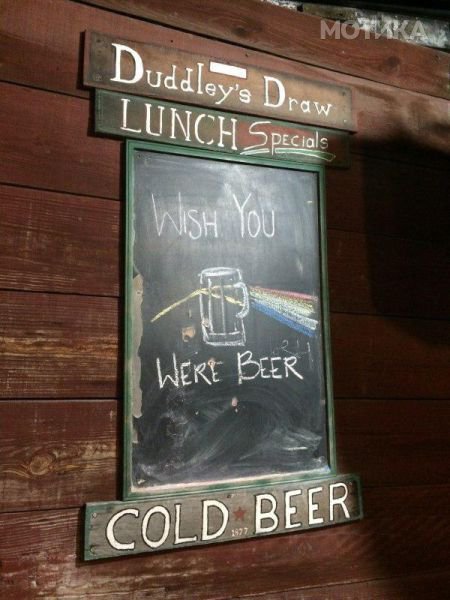 МОТИКА
Duddley's Draw
LUNCH Specials
WISH YOU
WERE BEER
COLD BEER
1977